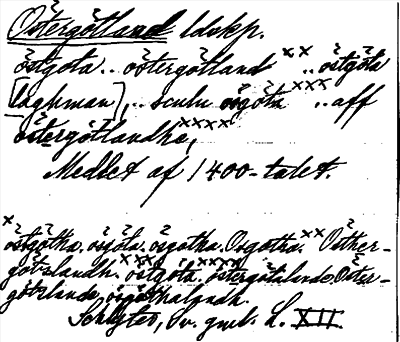 Östergötland ldskp.
östgöta .. östergötland ×× .. östgöta
[laghman], .. sculu osgöta ××× .. aff
östergötlandhe, ××××
Medlet af 1400-talet.
× östgötha, ösgöta. osgotha. Osgotha. ×× Osther-
götzlandh. ××× östgöta. ×××× östergötalande. Öster-
götzlande, ösgöthalandh.
Schlyter, Sv. gml. L. XII.